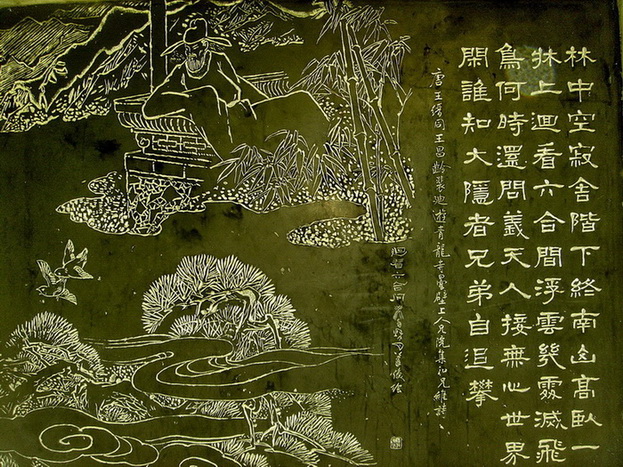 林中空寂舍階下終南山高臥一
牀上迴看六合間浮雲幾處滅飛
鳥何時還問義天人接無心世界
閑誰知大隱者兄弟自追攀
唐王縉同王昌齡裴迪遊青龍寺曇壁上人兄院集和兄維詩